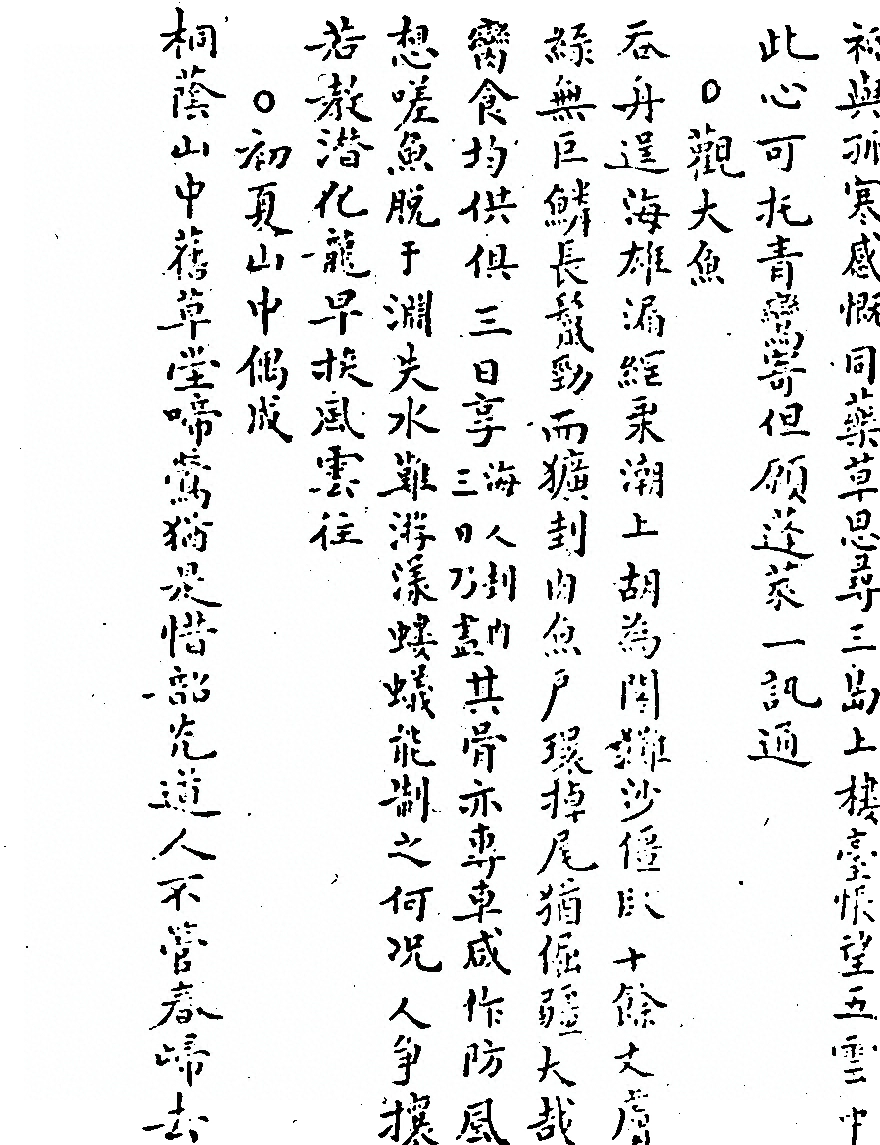 祇與孤寒感慨同藥草思尋三島上樓臺悵望五雲中
此心可托青鸞寄但願蓬萊一訊通
○觀大魚
吞舟逞海雄漏網乘潮上胡為閣難沙僵臥十餘丈膚
綠無巨鱗長鬣勁而獷封肉魚户環掉尾猶倔疆大哉
臠食均供俱三日享海人封肉三日乃盡其骨亦專車咸作防風
想嗟魚脫于淵失水難游漾螻蟻能制之何況人爭攘
若教潛化龍早挨風雲往
○初夏山中偶成
桐蔭山中舊草堂啼鶯猶是惜韶光道人不管春歸去